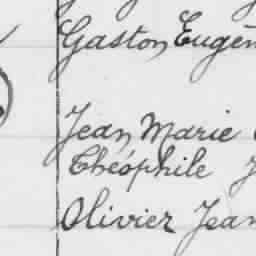 Gaston Eugèn
Jean Marie
Théophile J
Olivier Jean